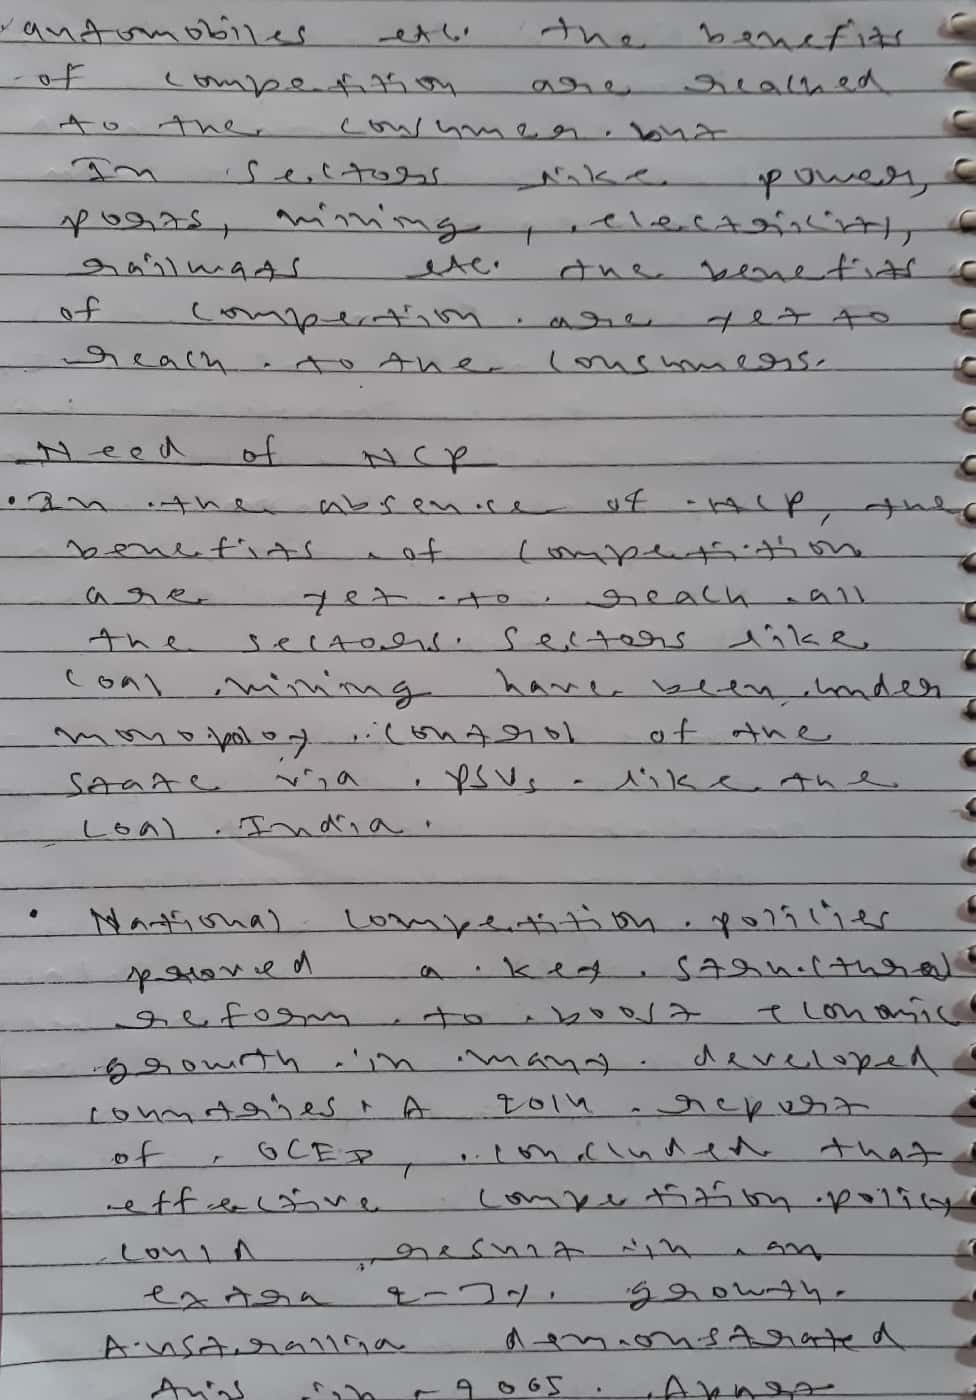 automobiles etc. the benefits
of competition are reached
to the consumer. but
In sectors like power,
ports, mining, electricity,
railways etc. the benefits
of competion are yet to
reach to the consumers.
Need of NCP
• In the absence of NCP, the
benefits of competition
are yet to reach all
the sectors. Sectors like
coal mining have been under
monopoloy control of the
state via PSUs like the
Coal India.
• National competition policies
proved a key structural
reform to boost economic
growth in many developed
countries. A 2014 report
of OCED, concluded that
effective competition policy
could result in an
extra 2-3%. growth.
Australlia demonstrated
this in